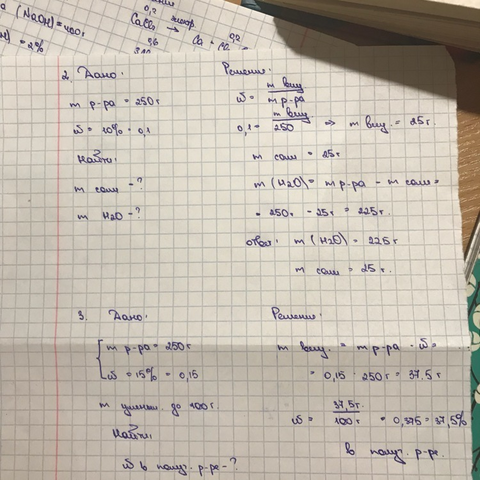 (NaOH)=400г
0,2
CaCl2 → Ca + Cl2
0,2
= 2%
0,6
2. Дано:
m р-ра = 250г
ω = 10% = 0,1
Найти:
m соли -?
m H2O -?
Решение:
ω = m вещ / m р-ра
0,1 = m вещ / 250 ⇒ m вещ. = 25г.
m соли = 25г
m (H2O) = m р-ра - m соли =
= 250г - 25г = 225г
ответ: m (H2O) = 225г
m соли = 25г.
3. Дано:
m р-ра = 250г
ω = 15% = 0,15
m уменьш. до 100г.
Найти:
ω в получ. р-ре -?
Решение:
m вещ. = m р-ра · ω =
= 0,15 · 250г = 37,5г
ω = 37,5г. / 100г = 0,375 = 37,5%
в получ. р-ре.